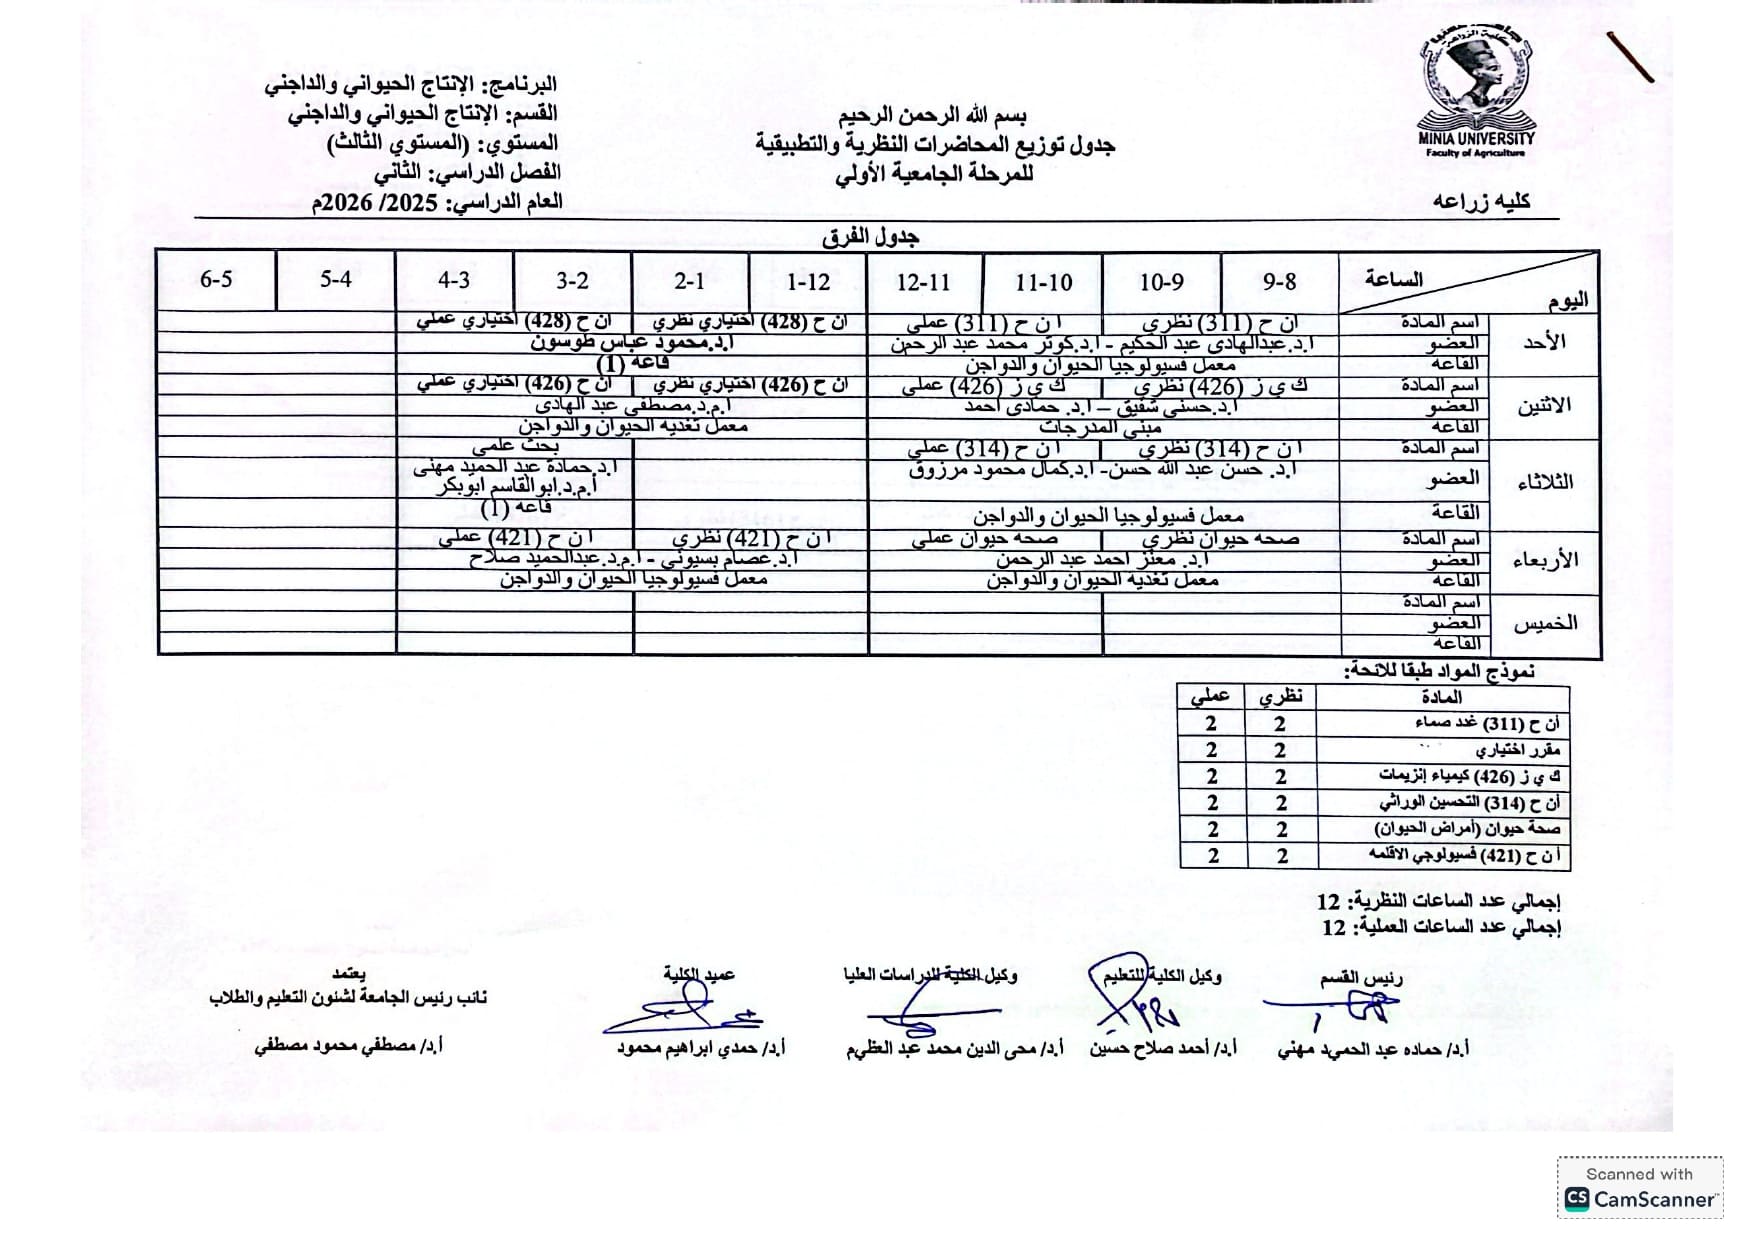 MINIA UNIVERSITY
Faculty of Agriculture
كليه زراعه
بسم الله الرحمن الرحيم
جدول توزيع المحاضرات النظرية والتطبيقية
للمرحلة الجامعية الأولي
البرنامج: الإنتاج الحيواني والداجني
القسم: الإنتاج الحيواني والداجني
المستوي: (المستوي الثالث)
الفصل الدراسي: الثاني
العام الدراسي: 2025/ 2026م
جدول الفرق
الساعة اليوم 9-8 10-9 11-10 12-11 1-12 2-1 3-2 4-3 5-4 6-5
الأحد
اسم المادة ا ن ح (311) نظري ا ن ح (311) عملي ان ح (428) اختياري نظري ان ح (428) اختياري عملي
العضو ا.د.عبدالهادى عبد الحكيم - ا.د.كوثر محمد عبد الرحمن ا.د.محمود عباس طوسون
القاعة معمل فسيولوجيا الحيوان والدواجن قاعه (1)
الاثنين
اسم المادة ك ي ز (426) نظري ك ي ز (426) عملي ان ح (426) اختياري نظري ان ح (426) اختياري عملي
العضو ا.د.حسنى شفيق – ا.د. حمادى احمد ا.م.د.مصطفى عبد الهادى
القاعة مبنى المدرجات معمل تغديه الحيوان والدواجن
الثلاثاء
اسم المادة ا ن ح (314) نظري ا ن ح (314) عملي بحث علمى
العضو ا.د. حسن عبد الله حسن- ا.د.كمال محمود مرزوق ا.د.حمادة عبد الحميد مهنى
أ.م.د.ابو القاسم ابوبكر
القاعة معمل فسيولوجيا الحيوان والدواجن قاعه (1)
الأربعاء
اسم المادة صحه حيوان نظري صحه حيوان عملي ا ن ح (421) نظري ا ن ح (421) عملي
العضو ا.د. معتز احمد عبد الرحمن ا.د.عصام بسيونى - ا.م.د.عبدالحميد صلاح
القاعة معمل تغديه الحيوان والدواجن معمل فسيولوجيا الحيوان والدواجن
الخميس
اسم المادة
العضو
القاعة
نموذج المواد طبقا للائحة:
المادة نظري عملي
أن ح (311) غدد صماء 2 2
مقرر اختياري 2 2
ك ي ز (426) كيمياء إنزيمات 2 2
أن ح (314) التحسين الوراثي 2 2
صحة حيوان (أمراض الحيوان) 2 2
أ ن ح (421) فسيولوجي الاقلمه 2 2
إجمالي عدد الساعات النظرية: 12
إجمالي عدد الساعات العملية: 12
رئيس القسم
أ.د/ حماده عبد الحميد مهني
وكيل الكلية للتعليم
أ.د/ أحمد صلاح حسين
وكيل الكلية للدراسات العليا
أ.د/ محى الدين محمد عبد العظيم
عميد الكلية
أ.د/ حمدي ابراهيم محمود
يعتمد
نائب رئيس الجامعة لشئون التعليم والطلاب
أ.د/ مصطفي محمود مصطفي
Scanned with
CS CamScanner